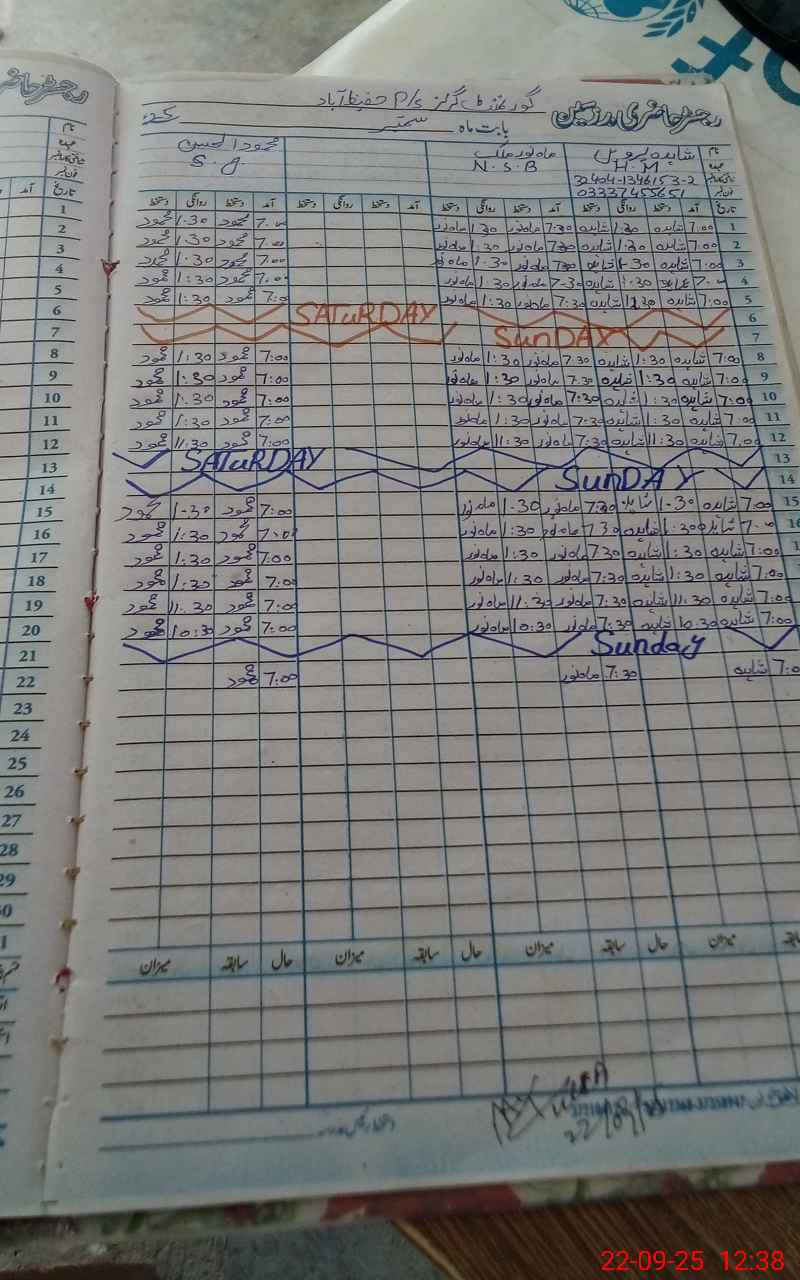 رجسٹر حاضری مدرسین گورنمنٹ گرلز P/s حفیظ آباد
بابت ماہ ستمبر 25
نام شاہدہ پروین ماہ نور ملک محمود الحسن
عہدہ H.M N.S.B S.G.
شناختی کارڈ نمبر 32404-1346153-2
فون نمبر 03337455651
تاریخ آمد دستخط روانگی دستخط آمد دستخط روانگی دستخط آمد دستخط روانگی دستخط آمد دستخط روانگی دستخط
1 7:00 شاہدہ 1:30 شاہدہ 7:30 ماہ نور 1:30 ماہ نور 7:00 محمود 1-30 محمود
2 7:00 شاہدہ 1:30 شاہدہ 7:30 ماہ نور 1:30 ماہ نور 7:00 محمود 1-30 محمود
3 7:00 شاہدہ 1-30 شاہدہ 7:30 ماہ نور 1-30 ماہ نور 7:00 محمود 1:30 محمود
4 7:00 شاہدہ 1:30 شاہدہ 7-30 ماہ نور 1:30 ماہ نور 7:00 محمود 1:30 محمود
5 7:00 شاہدہ 11:30 شاہدہ 7:30 ماہ نور 1:30 ماہ نور 7:0 محمود 1:30 محمود
6 SATuRDAY
7 SunDAY
8 7:00 شاہدہ 1:30 شاہدہ 7:30 ماہ نور 1:30 ماہ نور 7:00 محمود 1:30 محمود
9 7:00 شاہدہ 1:30 شاہدہ 7:30 ماہ نور 1:30 ماہ نور 7:00 محمود 1:30 محمود
10 7:00 شاہدہ 1:30 شاہدہ 7:30 ماہ نور 1:30 ماہ نور 7:00 محمود 1:30 محمود
11 7:00 شاہدہ 1:30 شاہدہ 7:30 ماہ نور 1:30 ماہ نور 7:00 محمود 1:30 محمود
12 7:00 شاہدہ 11:30 شاہدہ 7:30 ماہ نور 11:30 ماہ نور 7:00 محمود 11:30 محمود
13 SATuRDAY
14 SunDAY
15 7:00 شاہدہ 1-30 شاہدہ 7:30 ماہ نور 1-30 ماہ نور 7:00 محمود 1-30 محمود
16 7:00 شاہدہ 1:30 شاہدہ 7:30 ماہ نور 1:30 ماہ نور 7:00 محمود 1:30 محمود
17 7:00 شاہدہ 1:30 شاہدہ 7:30 ماہ نور 1:30 ماہ نور 7:00 محمود 1:30 محمود
18 7:00 شاہدہ 1:30 شاہدہ 7:30 ماہ نور 1:30 ماہ نور 7:00 محمود 1:30 محمود
19 7:00 شاہدہ 11:30 شاہدہ 7:30 ماہ نور 11:30 ماہ نور 7:00 محمود 11.30 محمود
20 7:00 شاہدہ 10:30 شاہدہ 7:30 ماہ نور 10:30 ماہ نور 7:00 محمود 10:30 محمود
21 Sunday
22 7:0 شاہدہ 7:30 ماہ نور 7:00 محمود
23
24
25
26
27
28
29
میزان حال سابقہ میزان حال سابقہ میزان حال سابقہ میزان
22/09/
22-09-25 12:38